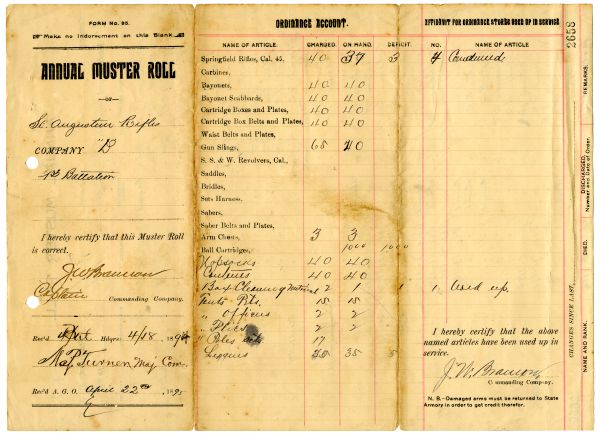 FORM No. 95.
Make no indorsement on this Blank.
ANNUAL MUSTER ROLL
—OF—
St. Augustine Rifles
COMPANY "D"
1st Battalion
I hereby certify that this Muster Roll
is correct.
J. W. Brannon
Captain Commanding Company.
Rec'd Hdqrs. 4/18 189
Turner Maj Com
Rec'd A. G. O. April 22nd 189
ORDNANCE ACCOUNT.
NAME OF ARTICLE. CHARGED. ON HAND. DEFICIT.
Springfield Rifles, Cal. 45, 40 37 3
Carbines,
Bayonets, 40 40
Bayonet Scabbards, 40 40
Cartridge Boxes and Plates, 40 40
Cartridge Box Belts and Plates, 40 40
Waist Belts and Plates,
Gun Slings, 65 40
S. S. & W. Revolvers, Cal.,
Saddles,
Bridles,
Sets Harness,
Sabers,
Saber Belts and Plates,
Arm Chests, 3 3
Ball Cartridges, 1000 1000
40 40
Canteens 40 40
Box Cleaning Material 2 1 1
Tents Pts. 15 15
" Officers 2 2
" Flies 2 2
" Poles 17
35 5
AFFIDAVIT FOR ORDNANCE STORES USED UP IN SERVICE
NO. NAME OF ARTICLE
4 Condemned
1 Used up
I hereby certify that the above
named articles have been used up in
service.
J. W. Brannon
Commanding Company.
N. B.—Damaged arms must be returned to State
Armory in order to get credit therefor.
2658
CHANGES SINCE LAST
REMARKS.
DISCHARGED,
Number and Date of Order.
DIED.
NAME AND RANK.